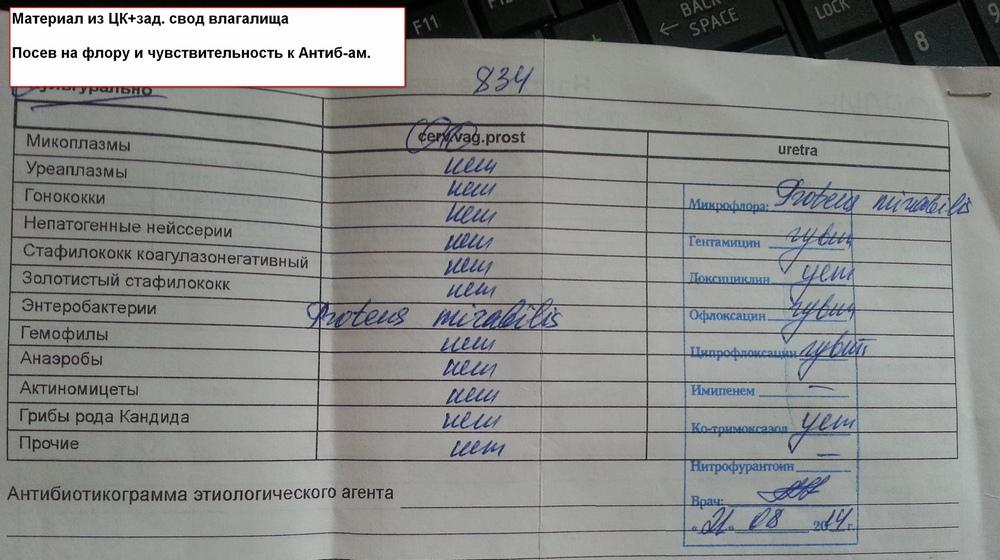 Материал из ЦК+зад. свод влагалища
Посев на флору и чувствительность к Антиб-ам.
F11
BACK SPACE
LOCK
8
9
834
cerv.vag.prost
uretra
Микоплазмы нет
Уреаплазмы нет
Гонококки нет
Непатогенные нейссерии нет
Стафилококк коагулазонегативный нет
Золотистый стафилококк нет
Энтеробактерии Proteus mirabilis
Гемофилы нет
Анаэробы нет
Актиномицеты нет
Грибы рода Кандида нет
Прочие нет
Микрофлора: Proteus mirabilis
Гентамицин чувст
Доксициклин уст
Офлоксацин чувст
Ципрофлоксацин чувст
Имипенем –
Ко-тримоксазол уст
Нитрофурантоин –
Врач:
« 21 » 08 2014 г.
Антибиотикограмма этиологического агента